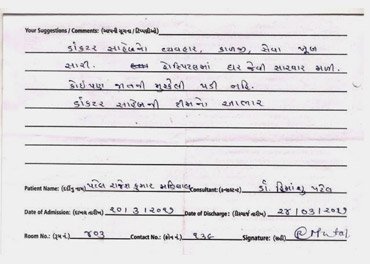 Your Suggestions / Comments: (આપની સૂચના / ટિપ્પણીઓ)
ડૉકટર સાહેબનો વ્યવહાર, કાળજી, સેવા ખૂબ
સારી. હોસ્પિટલમાં ઘર જેવી સારવાર મળી.
કોઇપણ જાતની મુશ્કેલી પડી નહિ.
ડૉકટર સાહેબની ટીમનો આભાર
Patient Name: (દર્દીનું નામ) પટેલ રાજેશકુમાર Consultant: (કન્સલ્ટન્ટ) ડૉ. હિમાંશુ પટેલ
Date of Admission: (દાખલ તારીખ) Date of Discharge: (ડિસ્ચાર્જ તારીખ)
Room No.: (રૂમ નં.) ૪૦૩ Contact No.: (ફોન નં.) Signature: (સહી)